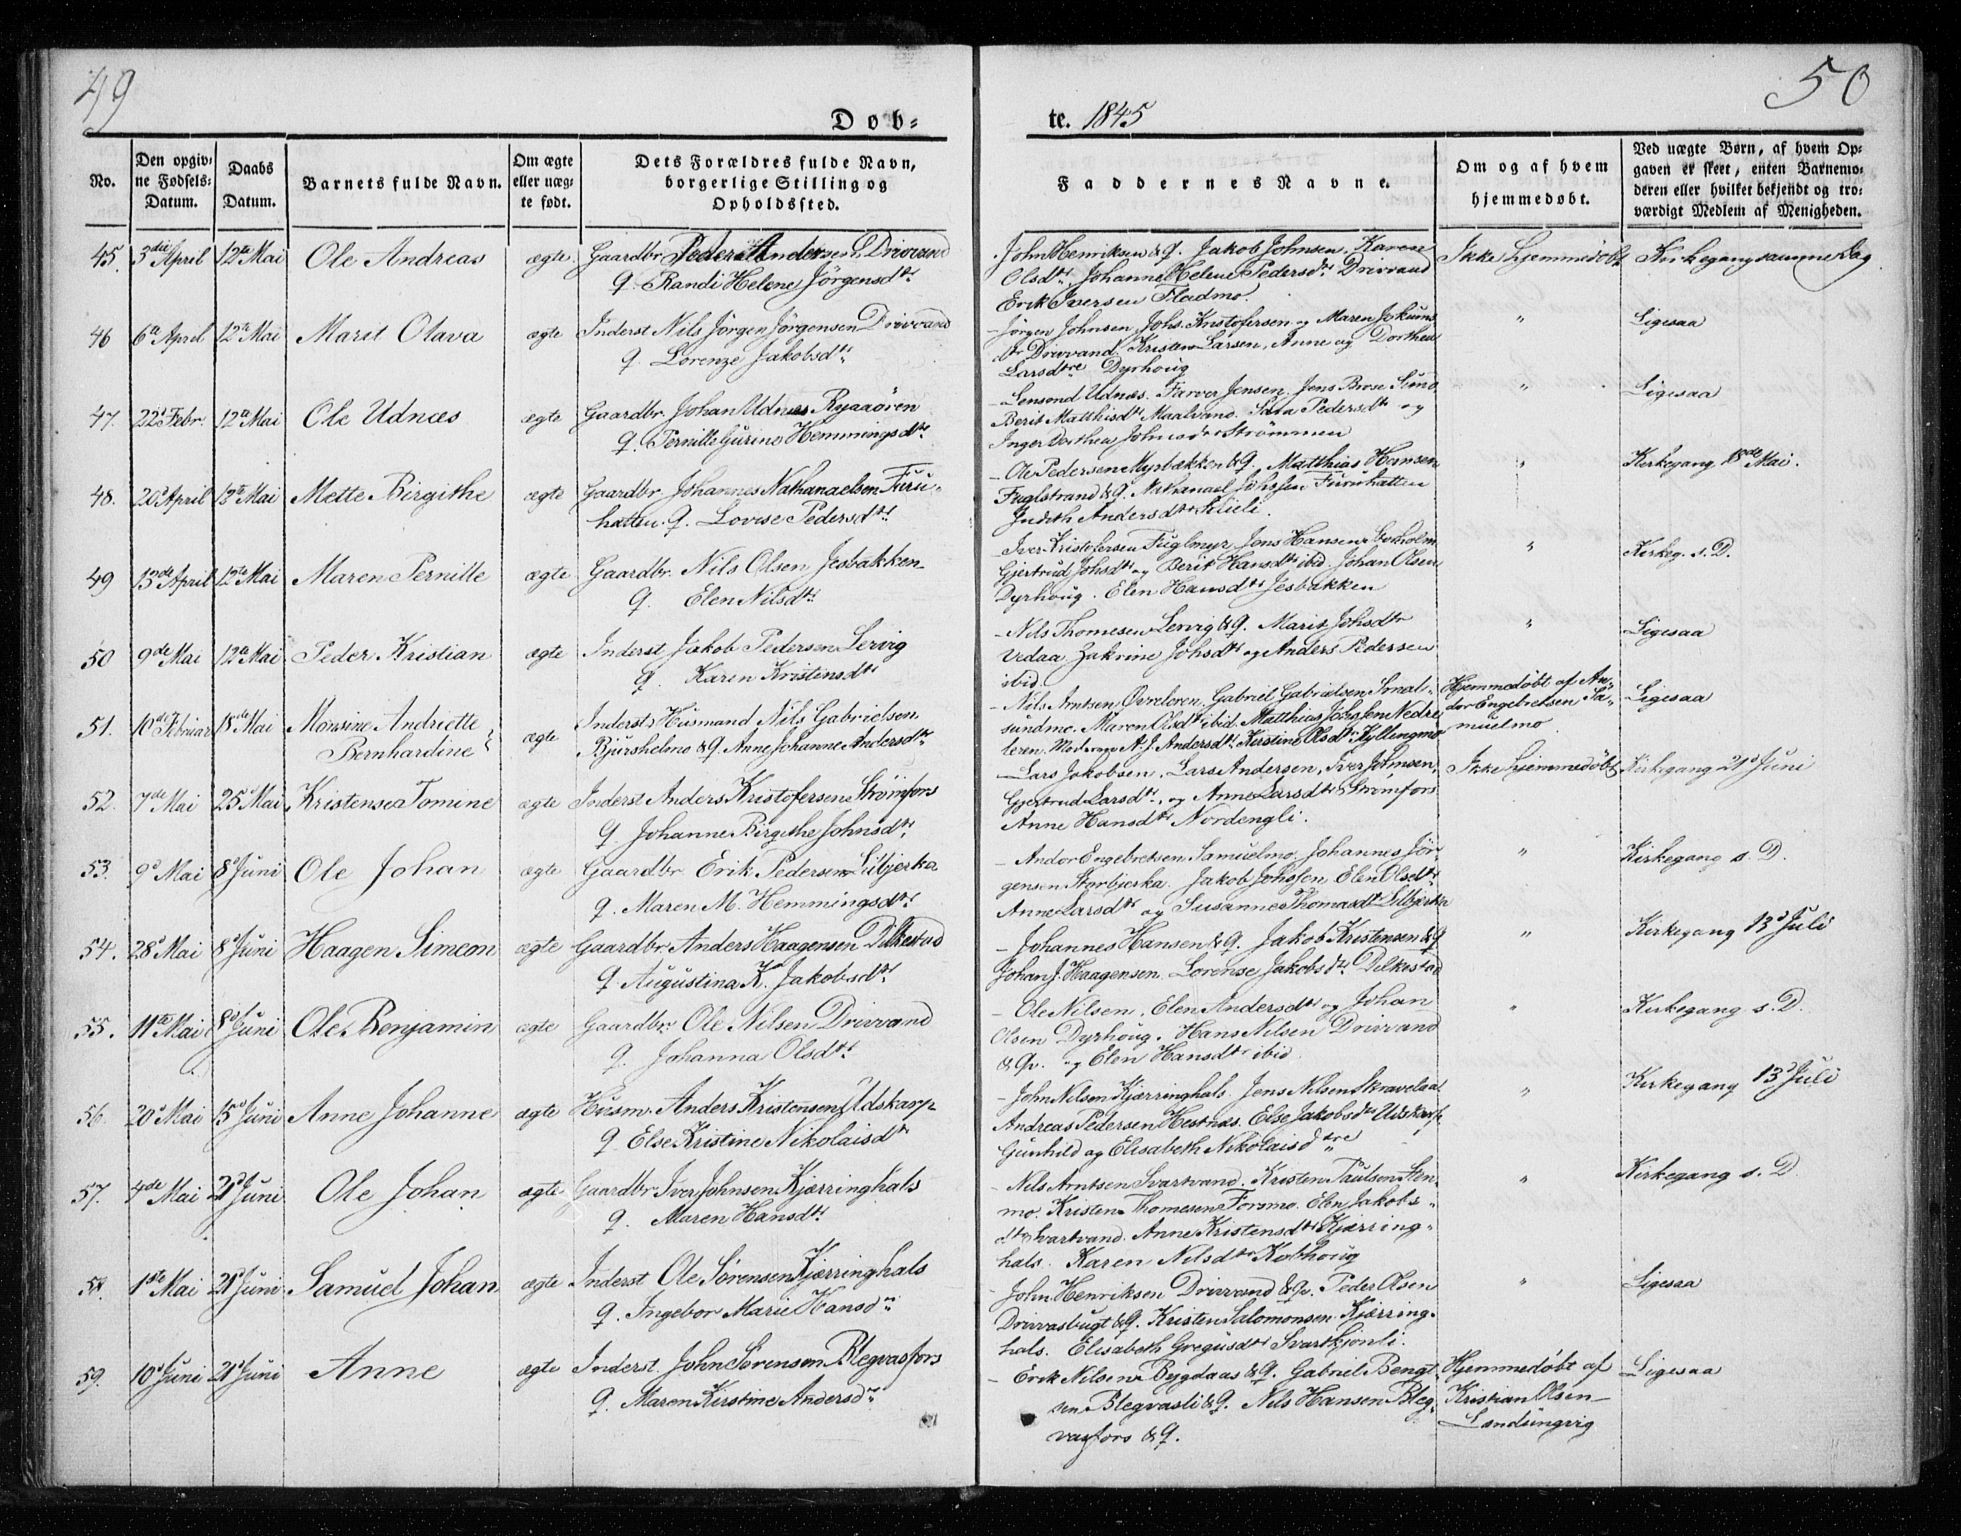 49
50
Døb-
te. 1845
No.
Den opgiv-
ne Fødsels-
Datum.
Daabs
Datum.
Barnets fulde Navn.
Om ægte
eller uæg-
te født.
Dets Forældres fulde Navn,
borgerlige Stilling og
Opholdssted.
Faddernes Navne.
Om og af hvem
hjemmedøbt.
Ved uægte Børn, af hvem Op-
gaven er skeet, enten Barnemo-
deren eller hvilket bekjendt og tro-
værdigt Medlem af Menigheden.
45. 3die April 12te Mai Ole Andreas ægte. Gaardbr. Peder Andersen Drivvand
Q. Randi Helene Jörgensdtr
John Henriksen & Q. Jakob Johnsen. Karen
Olsdtr. Johanne Helene Pedersdtr Drivvand
Erik Iversen Fladmo.
Ikke hjemmedöbt Kirkegang samme Dag
46 6te April 12te Mai Marit Olava ægte Inderst Nils Jörgen Jörgensen Drivvand
Q. Lorenze Jakobsdtr
Jörgen Johnsen, Johs. Kristofersen og Maren Jokums
dtr Drivvand. Kristen Larsen, Anne og Dorthea
Larsdtre Dyrhoug
" Ligesaa
47. 22d Febr. 12te Mai Ole Udnæs ægte Gaardbr. Johan Udnæs Ryaaören
Q. Pernille Gurine Hemmingsdtr
Udnæs. Farver Jensen, Jens Brose
Berit Matthisdtr Maalvand. Sara Pedersdtr og
Inger Dorthea Johnsdtr Strömmen
" Ligesaa
48. 20d April 12te Mai Mette Birgithe ægte Gaardbr. Johannes Nathanaelsen Furu-
hatten. Q. Lovise Pedersdtr
Ole Pedersen Myrbækken & Q. Matthias Hansen
Fuglstrand & Q. Nathanael Johssen Furuhatten
Judith Andersdtr
" Kirkegang 18de Mai.
49 13de April 12te Mai Maren Pernille ægte Gaardbr. Nils Olsen Jesbakken
Q. Elen Nilsdtr
Iver Kristofersen Fuglmyr Jens Hansen
Gjertrud Johsdtr og Berit Hansdtr ibid. Johan Olsen
Dyrhoug. Elen Hansdtr Jesbakken
" Kirkeg. s. D.
50 9de Mai 12te Mai Peder Kristian ægte Inderst Jakob Pedersen Lervig
Q. Karen Kristensdtr
Nils Thomesen Lervig & Q. Marit Johsdtr
Vedaa Zakrine Johsdtr og Anders Pedersen
ibid.
" Ligesaa
51. 10de Februar 18de Mai Monsine Andriette
Bernhardine ægte Inderst Husmand Nils Gabrielsen
Bjurshelmo & Q. Anne Johanne Andersdtr
Nils Arntsen Övreleren. Gabriel Gabrielsen Smal-
sundmo. Maren Olsdtr ibid. Matthias Johssen Nedre
leren. A. J. Andersdtr. Kirstine Olsdtr Kyllingmo
Hjemmedöbt af An-
dor Engebretsen Sa-
muelmo
Ligesaa
52. 7de Mai 25 Mai Kristense Tomine ægte Inderst Anders Kristofersen Strömfors
Q. Johanne Birgithe Johnsdtr
Lars Jakobsen, Lars Andersen, Iver Johnsen,
Gjertrud Larsdtr. og Anne Larsdtr Strömfors
Anne Hansdtr Nordengli.
Ikke hjemmedöbt Kirkegang 21d Juni
53. 9d Mai 8d Juni Ole Johan ægte Gaardbr Erik Pedersen Lilbjerka
Q. Maren M. Hemmingsdtr
Andor Engebretsen Samuelmo, Johannes Jör-
gensen Storbjerka. Jakob Johssen Elen Olsdtr
Anne Larsdtr og Susanne Thomasdtr Lilbjerka
" Kirkegang s. D.
54. 28d Mai 8d Juni Haagen Simeon ægte Gaardbr Anders Haagensen Dilkestad
Q. Augustina K. Jakobsdtr
Johannes Hansen & Q. Jakob Kristensen & Q
Johan J. Haagensen. Lorense Jakobsdtr Dilkestad
" Kirkegang 13d Juli
55. 11te Mai 8d Juni Ole Benjamin ægte Gaardbr. Ole Nilsen Drivvand
Q. Johanna Olsdtr
Ole Nilsen. Elen Andersdtr og Johan
Olsen Dyrhoug. Hans Nilsen Drivvand
& Qv. og Elen Hansdtr ibid.
" Kirkegang s. D.
56. 20d Mai 15d Juni Anne Johanne ægte Husm. Anders Kristensen Udskarp
Q. Else Kristine Nikolaisdtr
John Nilsen Kjærringhals. Jens Nilsen Skravelaa
Andreas Pedersen Hestnæs. Else Jakobsdtr Udskarp.
Gunhild og Elisabeth Nikolaisdtre
" Kirkegang 13d Juli
57. 4de Mai 21d Juni Ole Johan ægte Gaardbr Iver Johnsen Kjærringhals
Q. Maren Hansdtr
Nils Arntsen Svartvand. Kristen Paulsen Sten-
mo. Kristen Thomesen Forsmo. Elen Jakobs-
dtr Svartvand. Anne Kristensdtr Kjærring-
hals. Karen Nilsdtr
" Kirkegang s. D.
58. 1ste Mai 21d Juni Samuel Johan ægte Inderst Ole Sörensen Kjærringhals
Q. Ingebor Marie Hansdtr
John Henriksen Drivvand & Qv. Peder Olsen
Drivvasbugt & Q. Kristen Salomonsen Kjærring-
hals. Elisabeth Gregusdtr Svartkjönli.
" Ligesaa
59. 10d Juni 21d Juni Anne ægte Inderst John Sörensen Blegvasfors
Q. Maren Kirstine Andersdtr
Erik Nilsen Bygdaas & Q. Gabriel Bengt-
sen Blegvasli & Q. Nils Hansen Bleg-
vasfors & Q.
Hjemmedöbt af
Kristian Olsen
Landsingvig
Ligesaa